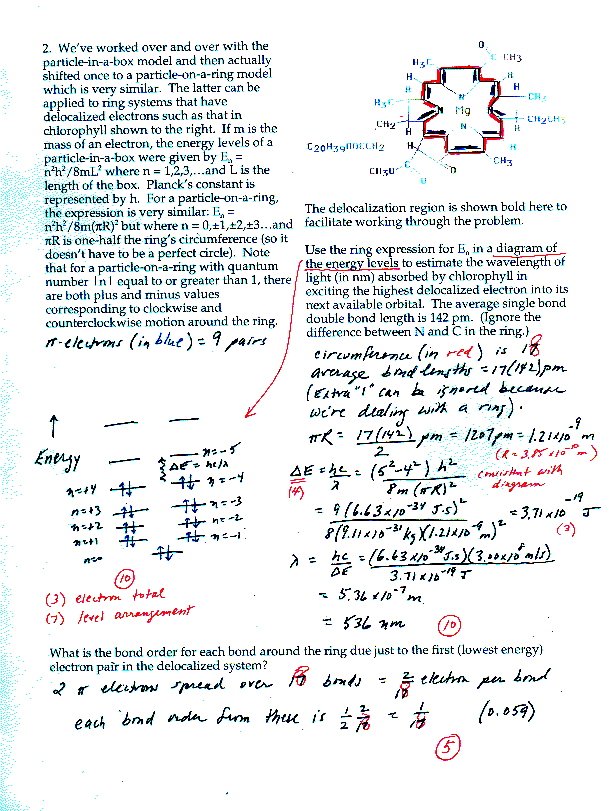 2. We've worked over and over with the
particle-in-a-box model and then actually
shifted once to a particle-on-a-ring model
which is very similar. The latter can be
applied to ring systems that have
delocalized electrons such as that in
chlorophyll shown to the right. If m is the
mass of an electron, the energy levels of a
particle-in-a-box were given by Eₙ =
n²h²/8mL² where n = 1,2,3,...and L is the
length of the box. Planck's constant is
represented by h. For a particle-on-a-ring,
the expression is very similar: Eₙ =
n²h²/8m(πR)² but where n = 0,±1,±2,±3...and
πR is one-half the ring's circumference (so it
doesn't have to be a perfect circle). Note
that for a particle-on-a-ring with quantum
number |n| equal to or greater than 1, there
are both plus and minus values
corresponding to clockwise and
counterclockwise motion around the ring.
π-electrons (in blue) = 9 pairs
Energy
n=-5
ΔE = hc/λ
n=+4 n=-4
n=+3 n=-3
n=+2 n=-2
n=+1 n=-1
n=0
(10)
(3) electron total
(7) level arrangement
H₃C CH3
H H
H
N
H₃C CH₃
N Mg N
CH2 N CH₂CH₃
C20H39OOCCH2 H H
CH₃
CH₃O C O
The delocalization region is shown bold here to
facilitate working through the problem.
Use the ring expression for Eₙ in a diagram of
the energy levels to estimate the wavelength of
light (in nm) absorbed by chlorophyll in
exciting the highest delocalized electron into its
next available orbital. The average single bond
double bond length is 142 pm. (Ignore the
difference between N and C in the ring.)
circumference (in red) is 18
average bond lengths = 17(142)pm
(Extra "1" can be ignored because
we're dealing with a ring).
πR = 17(142)/2 pm = 1207pm = 1.21x10⁻⁹ m
(R = 3.85 x10⁻¹⁰ m)
ΔE = hc/λ = (5²-4²) h²/8m (πR)² consistent with diagram
(4)
= 9 (6.63x10⁻³⁴ J·s)²/8(9.11x10⁻³¹ kg)(1.21x10⁻⁹ m)² = 3.71 x10⁻¹⁹ J
(3)
λ = hc/ΔE = (6.63x10⁻³⁴ J·s)(3.00x10⁸ m/s)/3.71 x10⁻¹⁹ J
= 5.36 x10⁻⁷ m
= 536 nm (10)
What is the bond order for each bond around the ring due just to the first (lowest energy)
electron pair in the delocalized system?
2 π electrons spread over 18 bonds = 2/18 electron per bond
each bond order from these is 1/2 2/18 = 1/18 (0.059)
(5)